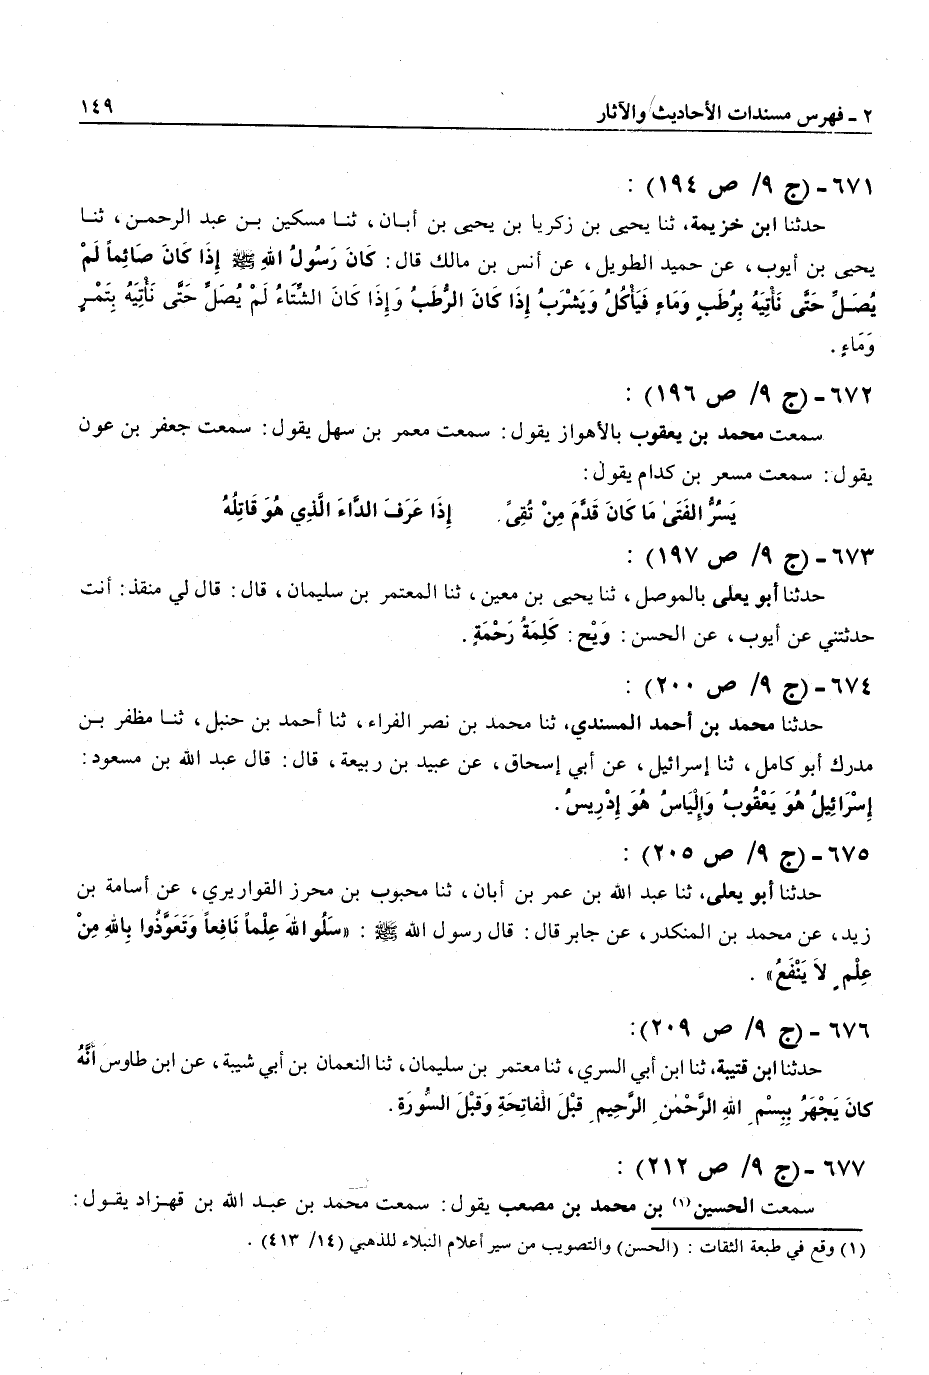 ٢ - فهرس مسندات الأحاديث والآثار ١٤٩
٦٧١ - (ج ٩/ ص ١٩٤) :
حدثنا ابن خزيمة، ثنا يحيى بن زكريا بن يحيى بن أبان، ثنا مسكين بن عبد الرحمن، ثنا
يحيى بن أيوب، عن حميد الطويل، عن أنس بن مالك قال: كَانَ رَسُولُ اللهِ ﷺ إِذَا كَانَ صَائِماً لَمْ
يُصَلِّ حَتَّى نَأْتِيَهُ بِرُطَبٍ وَمَاءٍ فَيَأْكُلُ وَيَشْرَبُ إِذَا كَانَ الرُّطَبُ وَإِذَا كَانَ الشِّتَاءُ لَمْ يُصَلِّ حَتَّى نَأْتِيَهُ بِتَمْرٍ
وَمَاءٍ .
٦٧٢ - (ج ٩/ ص ١٩٦) :
سمعت محمد بن يعقوب بالأهواز يقول: سمعت معمر بن سهل يقول: سمعت جعفر بن عون
يقول: سمعت مسعر بن كدام يقول:
يَسُرُّ الفَتَىٰ مَا كَانَ قَدَّمَ مِنْ تُقىً إِذَا عَرَفَ الدَّاءَ الَّذِي هُوَ قَاتِلُهُ
٦٧٣ - (ج ٩/ ص ١٩٧) :
حدثنا أبو يعلى بالموصل، ثنا يحيى بن معين، ثنا المعتمر بن سليمان، قال: قال لي منقذ: أنت
حدثتني عن أيوب، عن الحسن: وَيْح: كَلِمَةُ رَحْمَةٍ .
٦٧٤ - (ج ٩/ ص ٢٠٠) :
حدثنا محمد بن أحمد المسندي، ثنا محمد بن نصر الفراء، ثنا أحمد بن حنبل، ثنا مظفر بن
مدرك أبو كامل، ثنا إسرائيل، عن أبي إسحاق، عن عبيد بن ربيعة، قال: قال عبد الله بن مسعود:
إِسْرَائِيلُ هُوَ يَعْقُوبُ وَإِلْيَاسُ هُوَ إِدْرِيسُ .
٦٧٥ - (ج ٩/ ص ٢٠٥) :
حدثنا أبو يعلى، ثنا عبد الله بن عمر بن أبان، ثنا محبوب بن محرز القواريري، عن أسامة بن
زيد، عن محمد بن المنكدر، عن جابر قال: قال رسول الله ﷺ : «سَلُوا اللهَ عِلْماً نَافِعاً وَتَعَوَّذُوا بِاللهِ مِنْ
عِلْمٍ لاَ يَنْفَعُ» .
٦٧٦ - (ج ٩/ ص ٢٠٩):
حدثنا ابن قتيبة، ثنا ابن أبي السري، ثنا معتمر بن سليمان، ثنا النعمان بن أبي شيبة، عن ابن طاوس أَنَّهُ
كَانَ يَجْهَرُ بِبِسْمِ اللهِ الرَّحْمٰنِ الرَّحِيمِ قَبْلَ الْفَاتِحَةِ وَقَبْلَ السُّورَةِ .
٦٧٧ - (ج ٩/ ص ٢١٢) :
سمعت الحسين(١) بن محمد بن مصعب يقول: سمعت محمد بن عبد الله بن قهزاد يقول:
(١) وقع في طبعة الثقات : (الحسن) والتصويب من سير أعلام النبلاء للذهبي (١٤/ ٤١٣) .